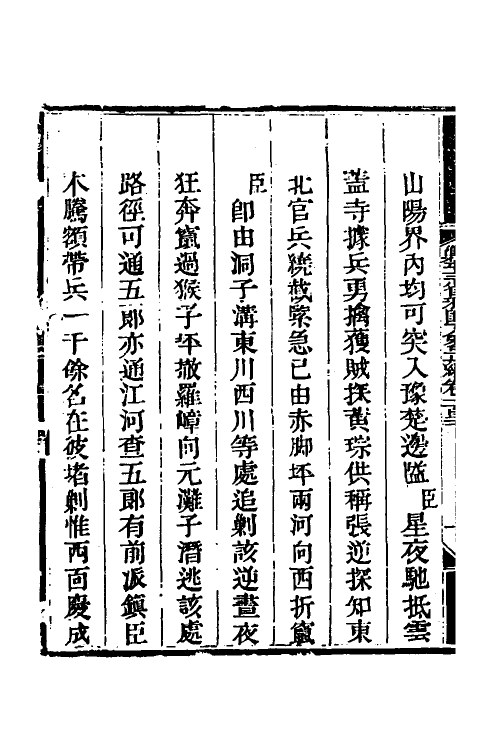 山陽界內均可突入豫楚邊隘臣星夜馳抵雲
蓋寺據兵勇擒獲賊探黃琮供稱張逆探知東
北官兵繞截緊急已由赤脚坪兩河向西折竄
臣卽由洞子溝東川西川等處追剿該逆晝夜
狂奔竄過猴子坪撤羅嶂向元灘子潛逃該處
路徑可通五郎亦通江河查五郎有前派鎮臣
木騰額帶兵一千餘名在彼堵剿惟西面慶成